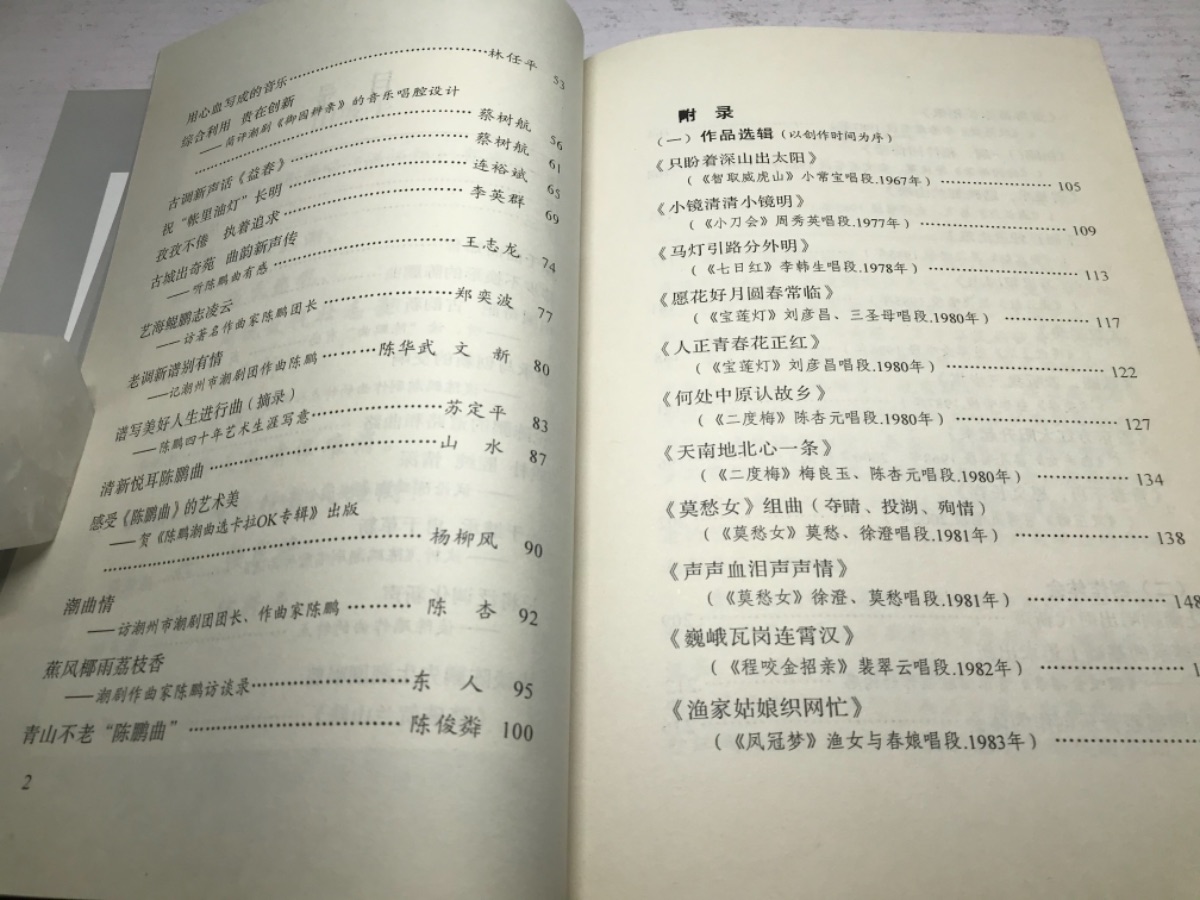 用心血写成的音乐……林任平 53
综合利用 贵在创新
——简评潮剧《御园辨亲》的音乐唱腔设计
……蔡树航 56
古调新声话《益春》……蔡树航 61
祝“帐里油灯”长明……连裕斌 65
孜孜不倦 执着追求……李英群 69
古城出奇苑 曲韵新声传
——听陈鹏曲有感……王志龙 74
艺海鲲鹏志凌云
——访著名作曲家陈鹏团长……郑奕波 77
老调新谱别有情
——记潮州市潮剧团作曲陈鹏……陈华武 文 新 80
谱写美好人生进行曲（摘录）
——陈鹏四十年艺术生涯写意……苏定平 83
清新悦耳陈鹏曲……山 水 87
感受《陈鹏曲》的艺术美
——贺《陈鹏潮曲选卡拉OK专辑》出版
……杨柳风 90
潮曲情
——访潮州市潮剧团团长、作曲家陈鹏……陈 杏 92
蕉风椰雨荔枝香
——潮剧作曲家陈鹏访谈录……东 人 95
青山不老“陈鹏曲”……陈俊粦 100
2
附 录
（一）作品选辑（以创作时间为序）
《只盼着深山出太阳》
（《智取威虎山》小常宝唱段.1967年）……105
《小镜清清小镜明》
（《小刀会》周秀英唱段.1977年）……109
《马灯引路分外明》
（《七日红》李韩生唱段.1978年）……113
《愿花好月圆春常临》
（《宝莲灯》刘彦昌、三圣母唱段.1980年）……117
《人正青春花正红》
（《宝莲灯》刘彦昌唱段.1980年）……122
《何处中原认故乡》
（《二度梅》陈杏元唱段.1980年）……127
《天南地北心一条》
（《二度梅》梅良玉、陈杏元唱段.1980年）……134
《莫愁女》组曲（夺晴、投湖、殉情）
（《莫愁女》莫愁、徐澄唱段.1981年）……138
《声声血泪声声情》
（《莫愁女》徐澄、莫愁唱段.1981年）……148
《巍峨瓦岗连霄汉》
（《程咬金招亲》裴翠云唱段.1982年）……
《渔家姑娘织网忙》
（《凤冠梦》渔女与春娘唱段.1983年）……